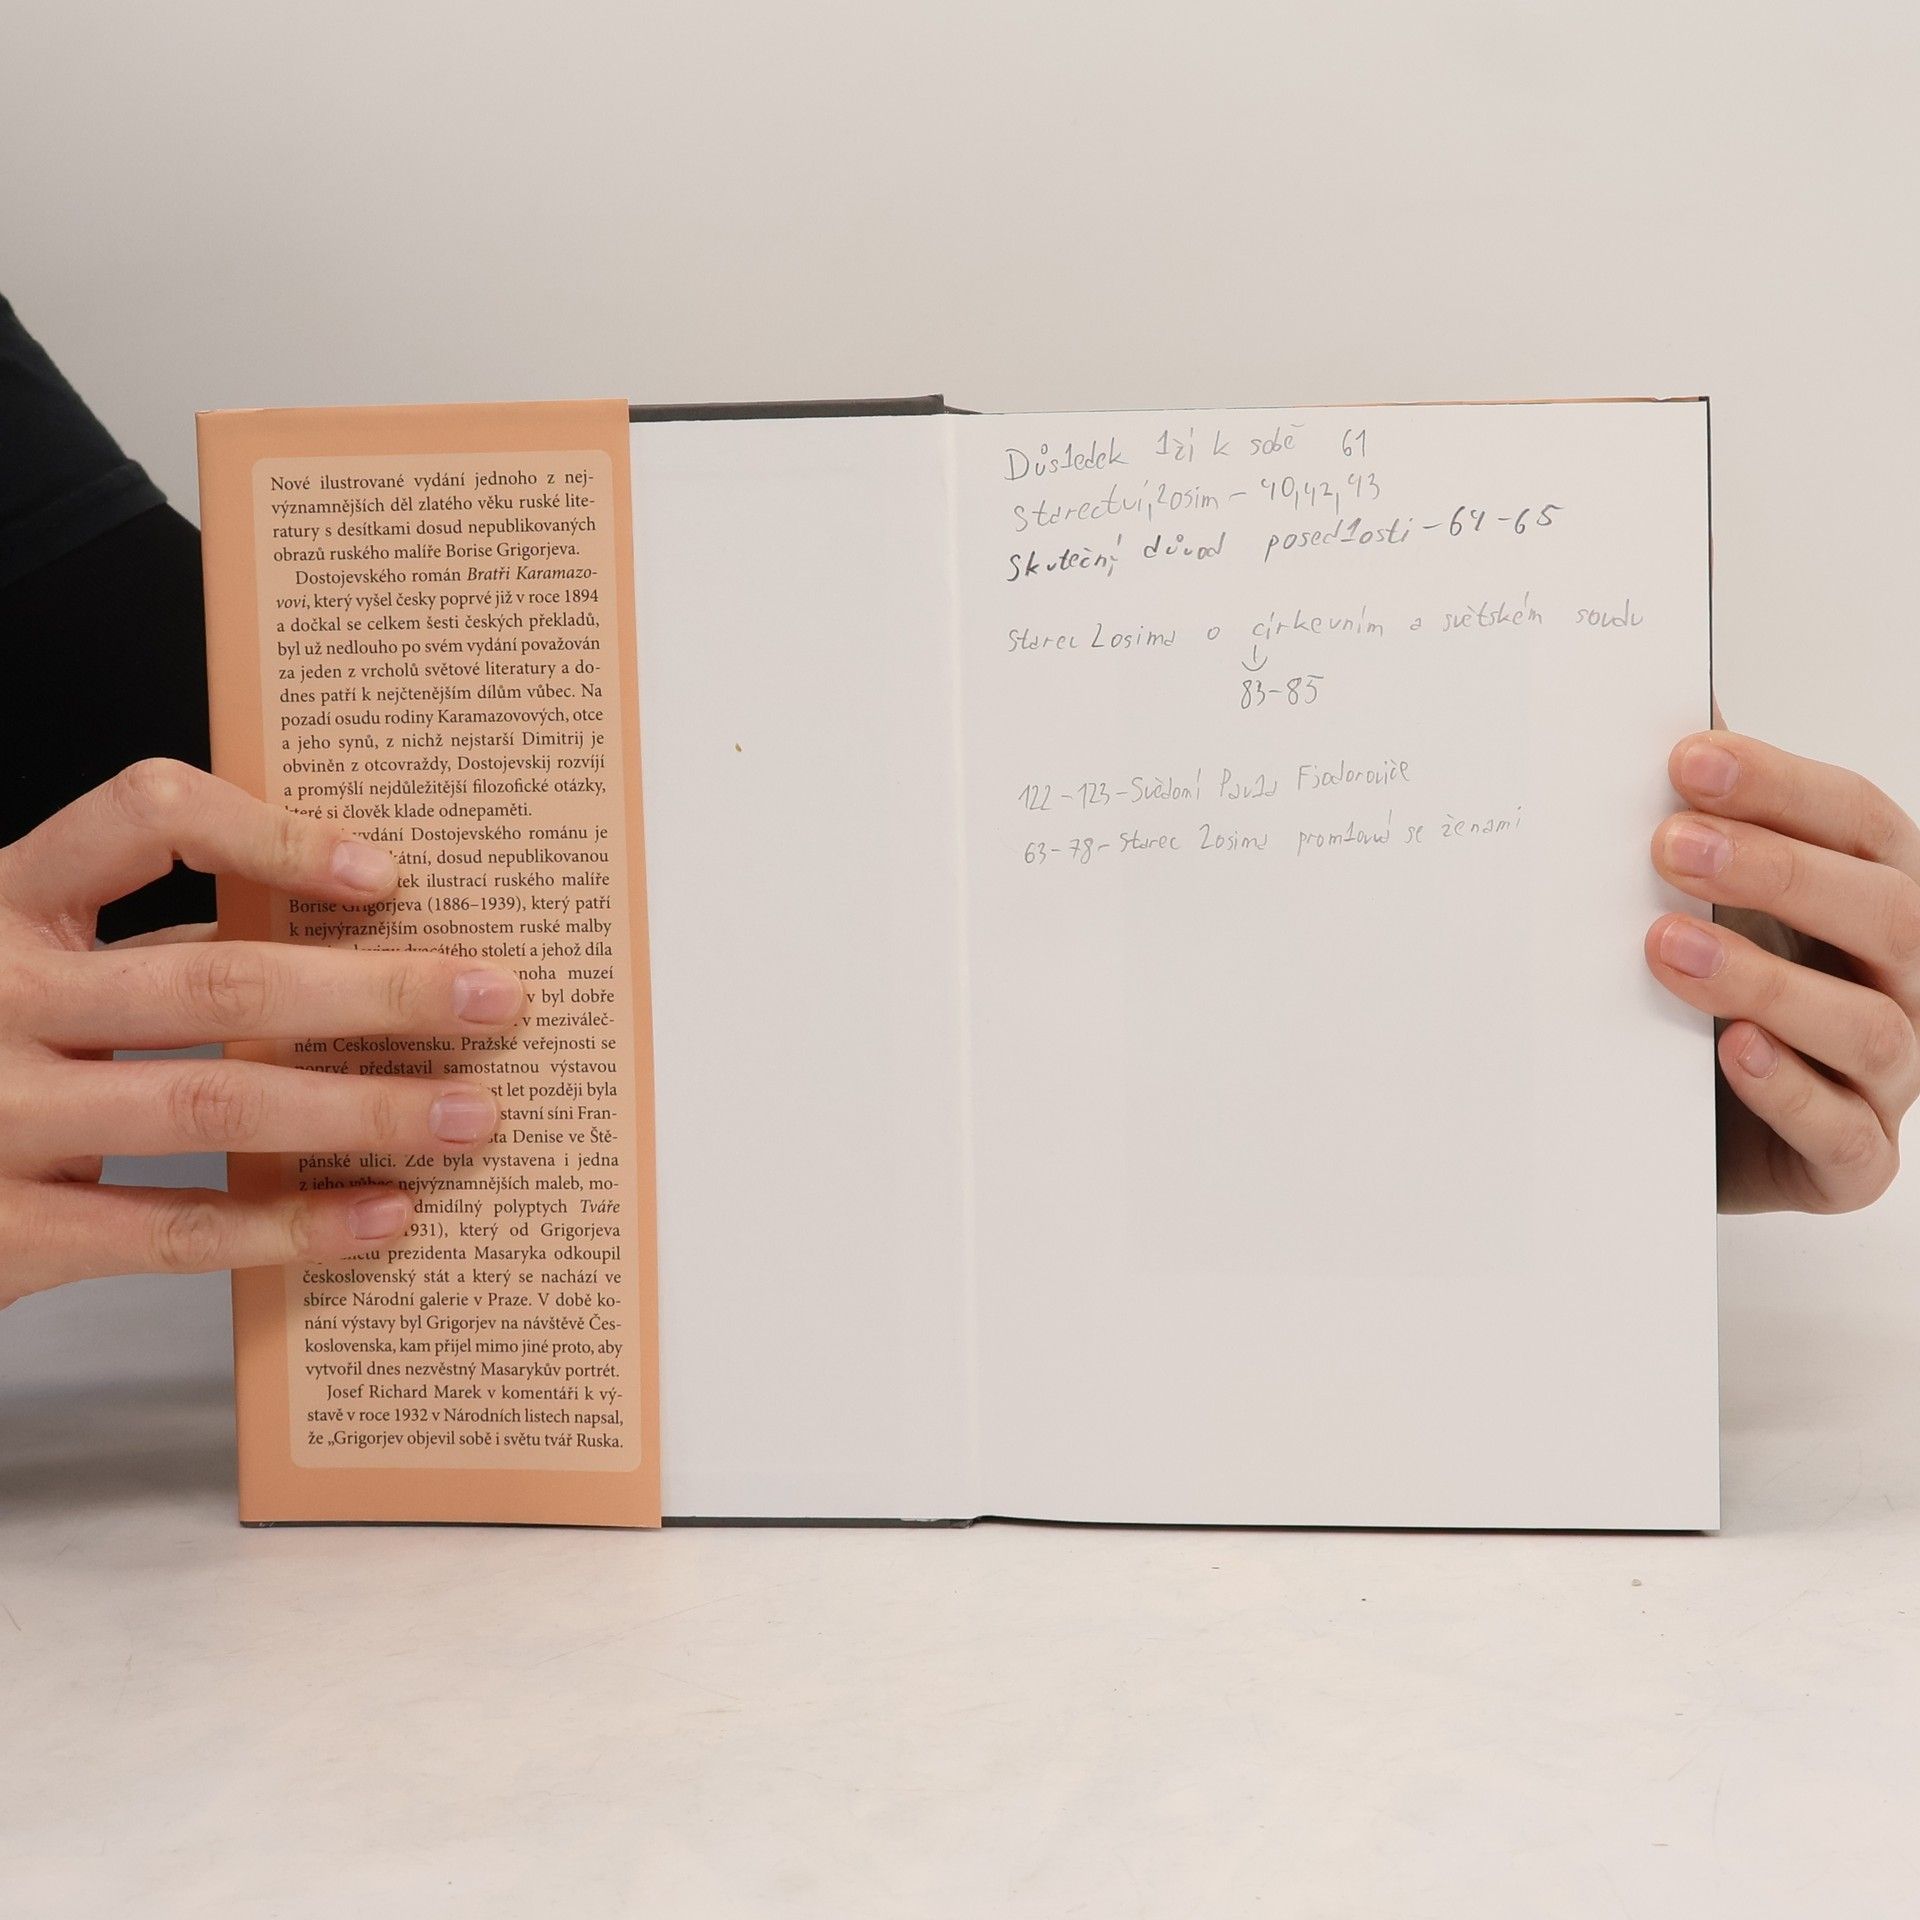 Nové ilustrované vydání jednoho z nej-
významnějších děl zlatého věku ruské lite-
ratury s desítkami dosud nepublikovaných
obrazů ruského malíře Borise Grigorjeva.
Dostojevského román Bratři Karamazo-
vovi, který vyšel česky poprvé již v roce 1894
a dočkal se celkem šesti českých překladů,
byl už nedlouho po svém vydání považován
za jeden z vrcholů světové literatury a do-
dnes patří k nejčtenějším dílům vůbec. Na
pozadí osudu rodiny Karamazovových, otce
a jeho synů, z nichž nejstarší Dimitrij je
obviněn z otcovraždy, Dostojevskij rozvíjí
a promýšlí nejdůležitější filozofické otázky,
které si člověk klade odnepaměti.
vydání Dostojevského románu je
dosud nepublikovanou
ilustrací ruského malíře
Borise Grigorjeva (1886–1939), který patří
k nejvýraznějším osobnostem ruské malby
dvacátého století a jehož díla
muzeí
v byl dobře
v meziváleč-
ném Československu. Pražské veřejnosti se
poprvé představil samostatnou výstavou
let později byla
síni Fran-
Denise ve Ště-
pánské ulici. Zde byla vystavena i jedna
z jeho vůbec nejvýznamnějších maleb, mo-
polyptych Tváře
1931), který od Grigorjeva
prezidenta Masaryka odkoupil
československý stát a který se nachází ve
sbírce Národní galerie v Praze. V době ko-
nání výstavy byl Grigorjev na návštěvě Čes-
koslovenska, kam přijel mimo jiné proto, aby
vytvořil dnes nezvěstný Masarykův portrét.
Josef Richard Marek v komentáři k vý-
stavě v roce 1932 v Národních listech napsal,
že „Grigorjev objevil sobě i světu tvář Ruska.
Důsledek lži k sobě 61
Starectví, Zosim – 40, 42, 43
Skutečný důvod posedlosti – 64 – 65
Starec Zosima o církevním a světském soudu
83 – 85
122 – 123 – Svědomí Pavla Fjodoroviče
63 – 78 – Starec Zosima promlouvá se ženami